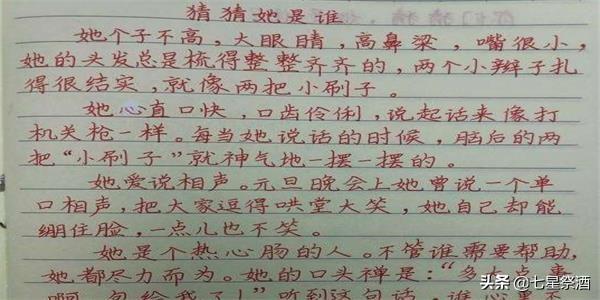 猜猜她是谁
她个子不高,大眼睛,高鼻梁,嘴很小,
她的头发总是梳得整整齐齐的,两个小辫子扎
得很结实,就像两把小刷子。
她心直口快,口齿伶俐,说起话来像打
机关枪一样。每当她说话的时候,脑后的两
把“小刷子”就神气地一摆一摆的。
她爱说相声。元旦晚会上她曾说一个单
口相声,把大家逗得哄堂大笑,她自己却能
绷住脸,一点儿也不笑。
她是个热心肠的人。不管谁需要帮助,
她都尽力而为。她的口头禅是:“多大点事
啊,包给我了!”听到这句话,谁心里不
头条 @七星祭酒